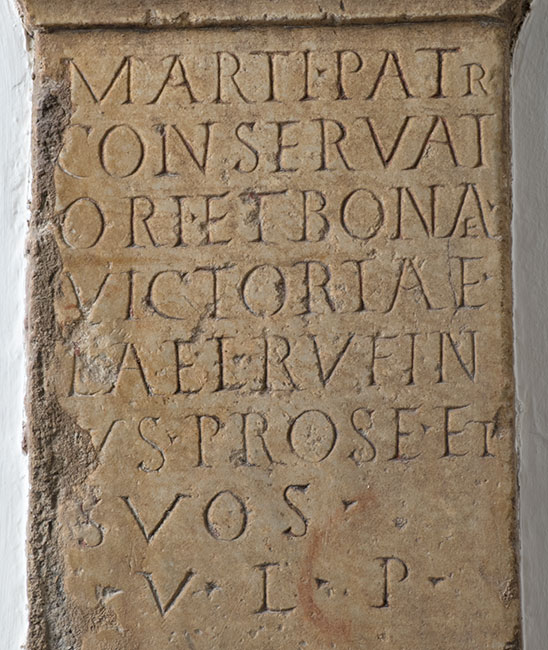 MARTI·PATR
CONSERVAT
ORI·ET BONAE·
VICTORIAE
L AEL RVFIN
VS·PRO SE·ET
SVOS·
·V·L·P·